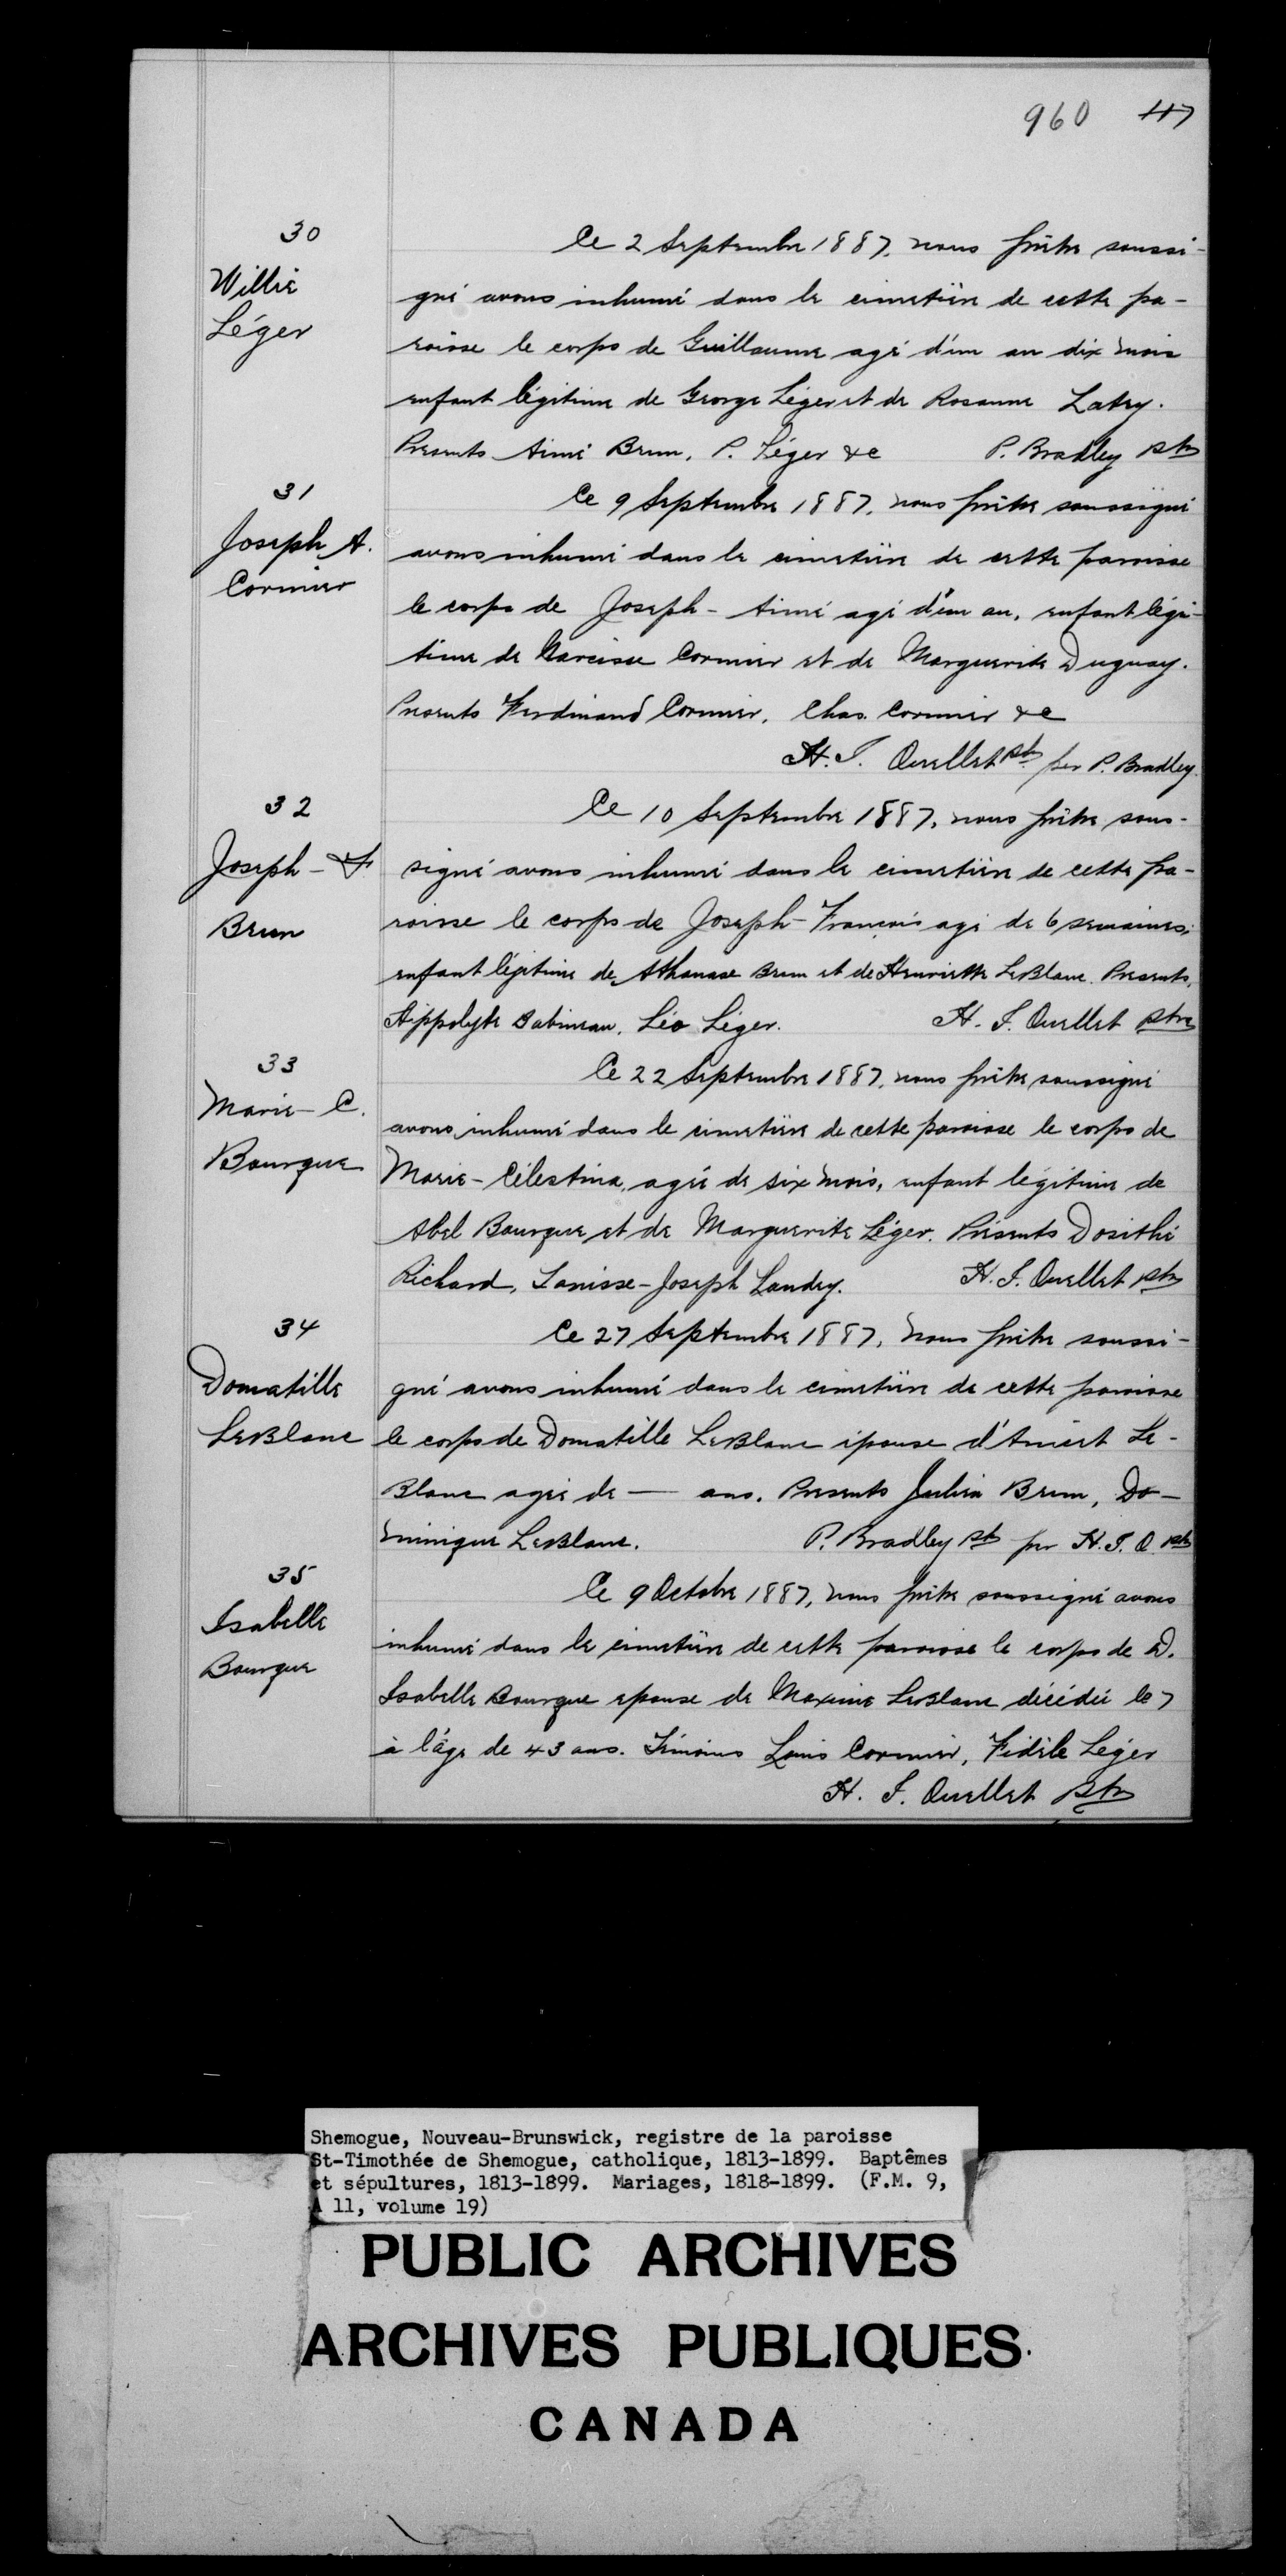 960 117
30
Willie
Léger
Le 2 Septembre 1887, nous prêtre soussi-
gné avons inhumé dans le cimetière de cette pa-
roisse le corps de Guillaume agé d'un an dix mois
enfant légitime de George Léger et de Rosanne Latry.
Presents Aimé Brun, P. Léger &c P. Bradley ptr
31
Joseph A.
Cormier
Le 9 Septembre 1887, nous prêtre soussigné
avons inhumé dans le cimetière de cette paroisse
le corps de Joseph-Aimé agé d'un an, enfant légi-
time de Narcisse Cormier et de Marguerite Duguay.
Presents Ferdinand Cormier, Chas. Cormier &c
H. J. Ouellet ptr per P. Bradley.
32
Joseph-F
Brun
Le 10 Septembre 1887, nous prêtre sous-
signé avons inhumé dans le cimetière de cette pa-
roisse le corps de Joseph-François agé de 6 semaines,
enfant légitime de Athanase Brun et de Henriette LeBlanc. Presents,
Hippolyte Babineau, Léo Léger. H. J. Ouellet ptre
33
Marie-C.
Bourque
Le 22 Septembre 1887, nous prêtre soussigné
avons inhumé dans le cimetière de cette paroisse le corps de
Marie-Célestina, agé de six mois, enfant légitime de
Abel Bourque et de Marguerite Léger. Présents Dosithé
Richard, -Joseph Landry. H. J. Ouellet ptr
34
Domatille
LeBlanc
Le 27 Septembre 1887, nous prêtre soussi-
gné avons inhumé dans le cimetière de cette paroisse
le corps de Domatille LeBlanc épouse d' Le-
Blanc agée de — ans. Presents Julien Brun, Do-
minique LeBlanc. P. Bradley ptr per H. J. O. ptr
35
Isabelle
Bourque
Le 9 Octobre 1887, nous prêtre soussigné avons
inhumé dans le cimetière de cette paroisse le corps de D.
Isabelle Bourque epouse de Maxime LeBlanc décédée le 7
à l'âge de 43 ans. Témoins Louis Cormier, Fidèle Léger
H. J. Ouellet ptr
Shemogue, Nouveau-Brunswick, registre de la paroisse
St-Timothée de Shemogue, catholique, 1813-1899. Baptêmes
et sépultures, 1813-1899. Mariages, 1818-1899. (F.M. 9,
A 11, volume 19)
PUBLIC ARCHIVES
ARCHIVES PUBLIQUES
CANADA